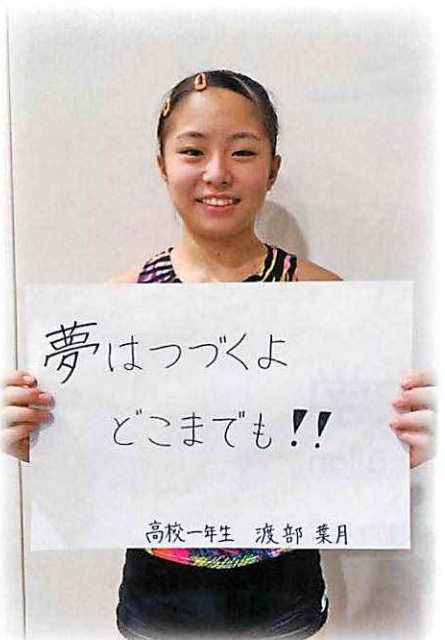 夢はつづくよ
どこまでも!!
高校一年生 渡部 葉月